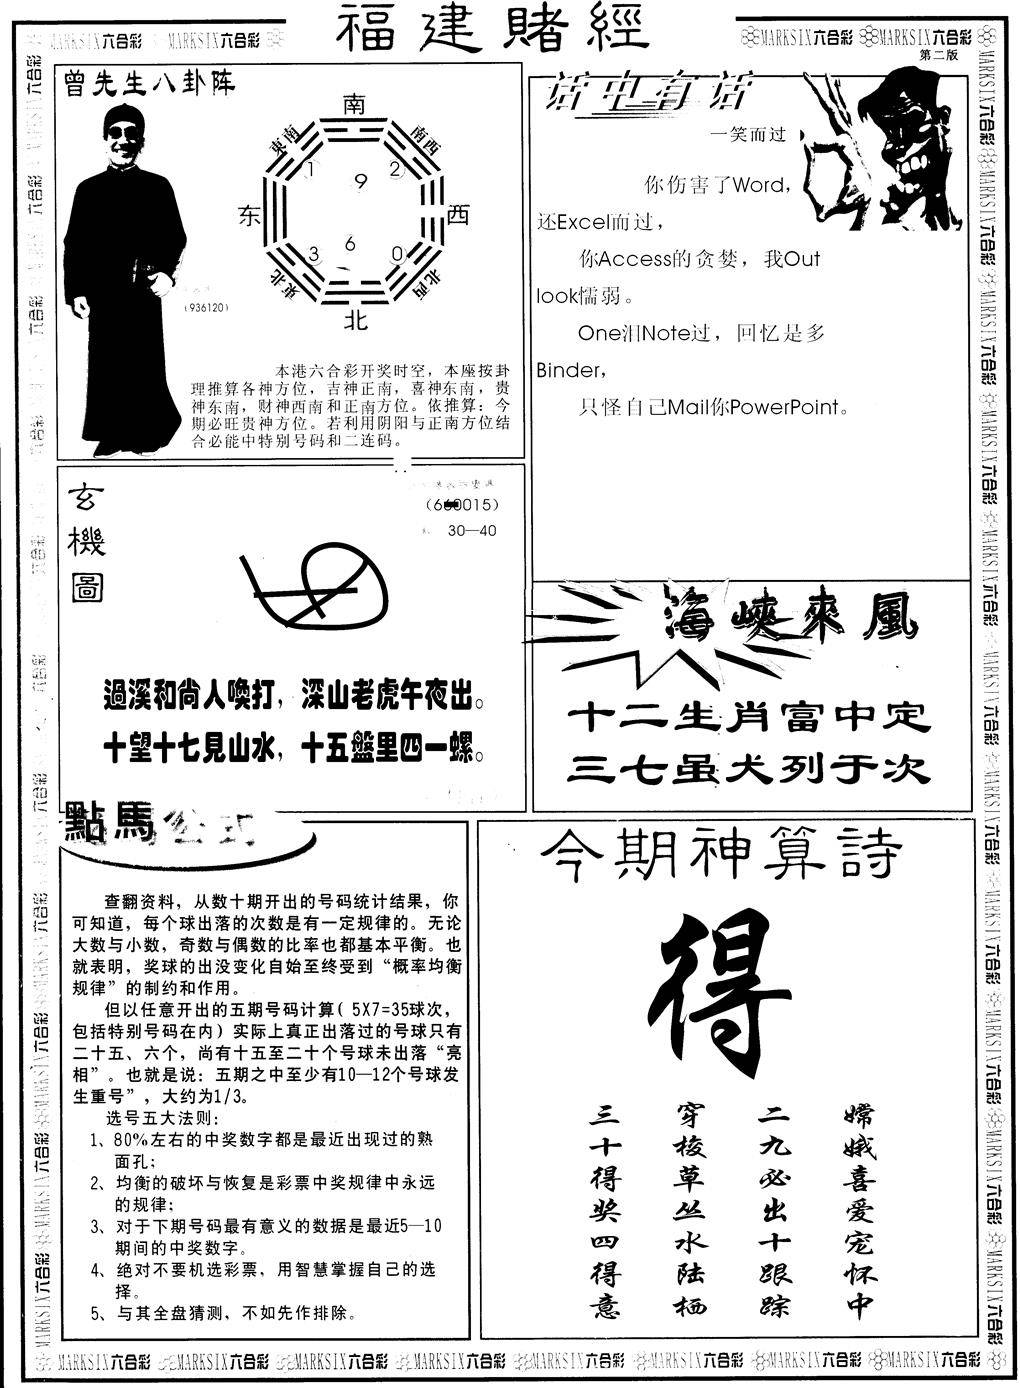 福建賭經
MARKSIX六合彩 MARKSIX六合彩
MARKSIX六合彩 MARKSIX六合彩
第二版
曾先生八卦阵
南
東南
南西
1
9
2
东
西
3
6
0
東北
北西
北
(936120)
本港六合彩开奖时空，本座按卦
理推算各神方位，吉神正南，喜神东南，贵
神东南，财神西南和正南方位。依推算：今
期必旺贵神方位。若利用阴阳与正南方位结
合必能中特别号码和二连码。
话中有话
一笑而过
你伤害了Word，
还Excel而过，
你Access的贪婪，我Out
look懦弱。
One泪Note过，回忆是多
Binder，
只怪自己Mail你PowerPoint。
玄機圖
30—40
過溪和尚人喚打，深山老虎午夜出。
十望十七見山水，十五盤里四一螺。
海峽來風
十二生肖富中定
三七虽犬列于次
點馬公式
查翻资料，从数十期开出的号码统计结果，你
可知道，每个球出落的次数是有一定规律的。无论
大数与小数，奇数与偶数的比率也都基本平衡。也
就表明，奖球的出没变化自始至终受到“概率均衡
规律”的制约和作用。
但以任意开出的五期号码计算（5X7=35球次，
包括特别号码在内）实际上真正出落过的号球只有
二十五、六个，尚有十五至二十个号球未出落“亮
相”。也就是说：五期之中至少有10—12个号球发
生重号”，大约为1/3。
选号五大法则：
1、80%左右的中奖数字都是最近出现过的熟
面孔；
2、均衡的破坏与恢复是彩票中奖规律中永远
的规律；
3、对于下期号码最有意义的数据是最近5—10
期间的中奖数字。
4、绝对不要机选彩票，用智慧掌握自己的选
择。
5、与其全盘猜测，不如先作排除。
今期神算詩
得
嫦娥喜爱宠怀中
二九必出十跟踪
穿梭草丛水陆栖
三十得奖四得意
MARKSIX六合彩 MARKSIX六合彩 MARKSIX六合彩 MARKSIX六合彩 MARKSIX六合彩 MARKSIX六合彩 MARKSIX六合彩 MARKSIX六合彩